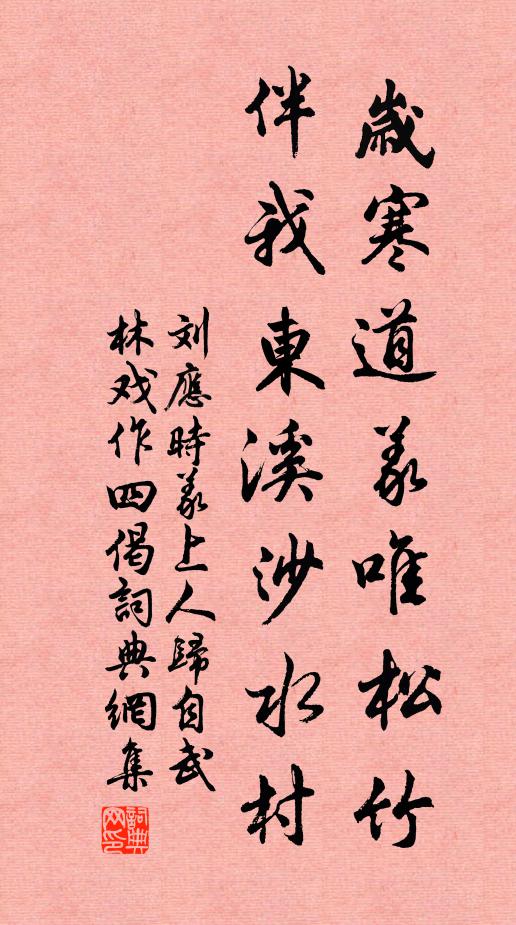 歲寒道義唯松竹
伴我東溪沙水村
刘應時義上人歸自武
林戏作四偈詞典網集
詞典网印